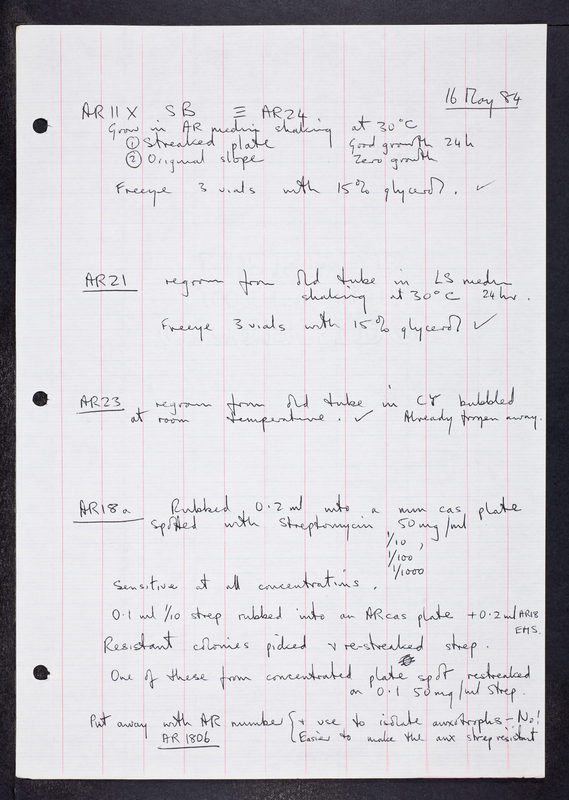 16 May 84
AR11X SB ≡ AR24
Grow in AR medm shaking at 30°C
① Streaked plate Good growth 24h
② Original slope Zero growth
Freeze 3 vials with 15% glycerol. ✓
AR21 regrown from old tube in LS medm
shaking at 30°C 24hr.
Freeze 3 vials with 15% glycerol ✓
AR23 regrown from old tube in CY bubbled
at room temperature. ✓ Already frozen away.
AR18a Rubbed 0.2 ml into a min cas plate
spotted with Streptomycin 50mg/ml
1/10,
1/100
1/1000
Sensitive at all concentrations.
0.1 ml 1/10 strep rubbed into an AR cas plate + 0.2 ml AR18
EMS.
Resistant colonies picked & re-streaked strep.
One of these from concentrated plate spot restreaked
on 0.1 50mg/ml strep.
Put away with AR number { + use to isolate auxotrophs – No!
AR1806 Easier to make the aux strep resistant